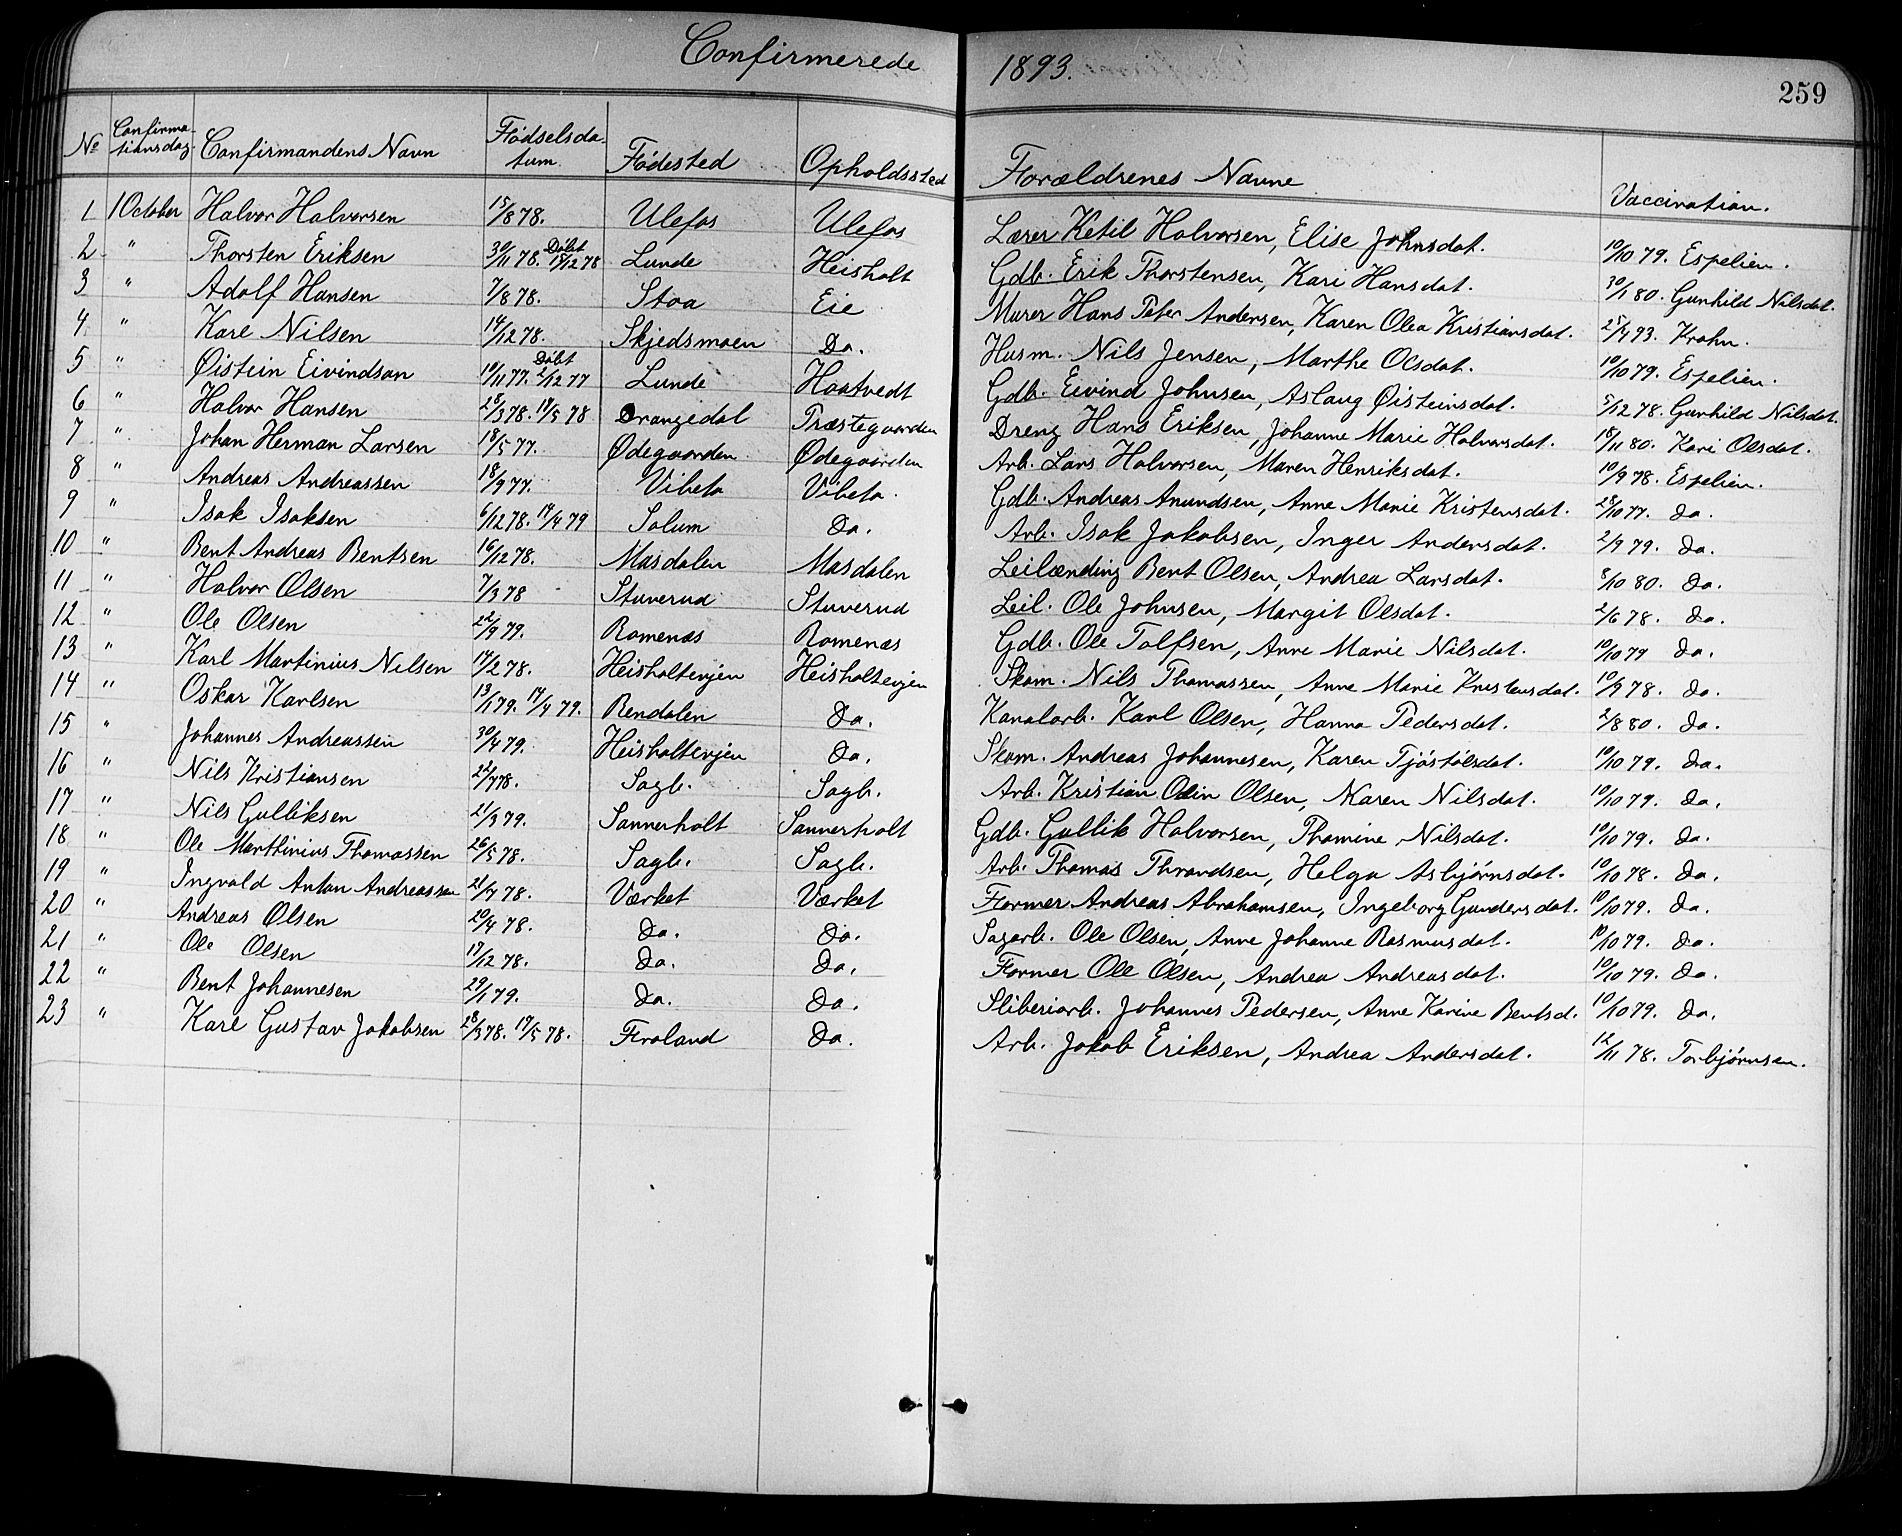 Confirmerede 1893.
259
No Confirmationsdag. Confirmandens Navn Fødselsdatum Fødested Opholdssted Forældrenes Navne Vaccination.
1 1 October Halvor Halvorsen 15/8 78. Ulefos Ulefos Lærer Ketil Halvorsen, Elise Johnsdat. 10/10 79. Espelien.
2 " Thorsten Eriksen 30/11 78. Døbt 15/12 78 Lunde Heisholt Gdb. Erik Thorstensen, Kari Hansdat. 30/1 80. Gunhild Nilsdat.
3 " Adolf Hansen 7/8 78. Stoa Eie Murer Hans Peter Andersen, Karen Olea Kristiansdat. 25/9 93. Krohn.
4 " Karl Nilsen 14/12 78. Skjedsmoen Do. Husm. Nils Jensen, Marthe Olsdat. 10/10 79. Espelien.
5 " Øistein Eivindson 10/11 77. Døbt 2/12 77 Lunde Haatvedt Gdb. Eivind Johnsen, Aslaug Øisteinsdat. 5/12 78. Gunhild Nilsdat.
6 " Halvor Hansen 28/3 78. 19/5 78 Drangedal Præstegaarden Dreng Hans Eriksen, Johanne Marie Halvorsdat. 18/11 80. Kari Olsdat.
7 " Johan Herman Larsen 18/5 77. Ødegaarden Ødegaarden Arb. Lars Halvorsen, Maren Henriksdat. 10/9 78. Espelien.
8 " Andreas Andreassen 18/9 77. Vibeto Vibeto. Gdb. Andreas Anundsen, Anne Marie Kristensdat. 28/10 77. do.
9 " Isak Isaksen 6/12 78. 14/4 79 Solum Do. Arb. Isak Jakobsen, Inger Andersdat. 2/9 79. do.
10 " Bent Andreas Bentsen 16/12 78. Masdalen Masdalen Leilænding Bent Olsen, Andrea Larsdat. 8/10 80. do.
11 " Halvor Olsen 7/3 78 Stuverud Stuverud Leil. Ole Johnsen, Margit Olsdat. 2/6 78. do.
12 " Ole Olsen 22/9 79. Romenæs Romenæs Gdb. Ole Tolfsen, Anne Marie Nilsdat. 10/10 79 do.
13 " Karl Martinius Nilsen 14/2 78. Heisholtevjen Heisholtevjen Skom. Nils Thomassen, Anne Marie Kristensdat. 10/9 78. do.
14 " Oskar Karlsen 13/1 79. 14/4 79. Rendalen Do. Kanalarb. Karl Olsen, Hanna Pedersdat. 2/8 80. do.
15 " Johannes Andreassen 30/4 79. Heisholtevjen Do. Skom. Andreas Johannesen, Karen Tjøstølsdat. 10/10 79. do.
16 " Nils Kristiansen 22/7 78. Sagb. Sagb. Arb. Kristian Odin Olsen, Maren Nilsdat. 10/10 79. do.
17 " Nils Gulliksen 21/3 79. Sannerholt Sannerholt Gdb. Gullik Halvorsen, Thomine Nilsdat. 10/10 79. do.
18 " Ole Marthinius Thomassen 26/5 78. Sagb. Sagb. Arb. Thomas Throndsen, Helga Asbjørnsdat. 10/10 78. do.
19 " Ingvald Anton Andreassen 21/7 78. Værket Værket Former Andreas Abrahamsen, Ingeborg Gundersdat. 10/10 79. do.
20 " Andreas Olsen 20/4 78. Do. Do. Sagarb. Ole Olsen, Anne Johanne Rasmusdat. 10/10 79. do.
21 " Ole Olsen 17/12 78. Do. Do. Former Ole Olsen, Andrea Andreasdat. 10/10 79. do.
22 " Bent Johannesen 29/1 79. Do. Do. Sliberiarb. Johannes Pedersen, Anne Karine Bentsd. 10/10 79. do.
23 " Karl Gustav Jakobsen 28/3 78. 19/5 78. Froland Do. Arb. Jakob Eriksen, Andrea Andersdat. 12/11 78. Torbjørnsen.